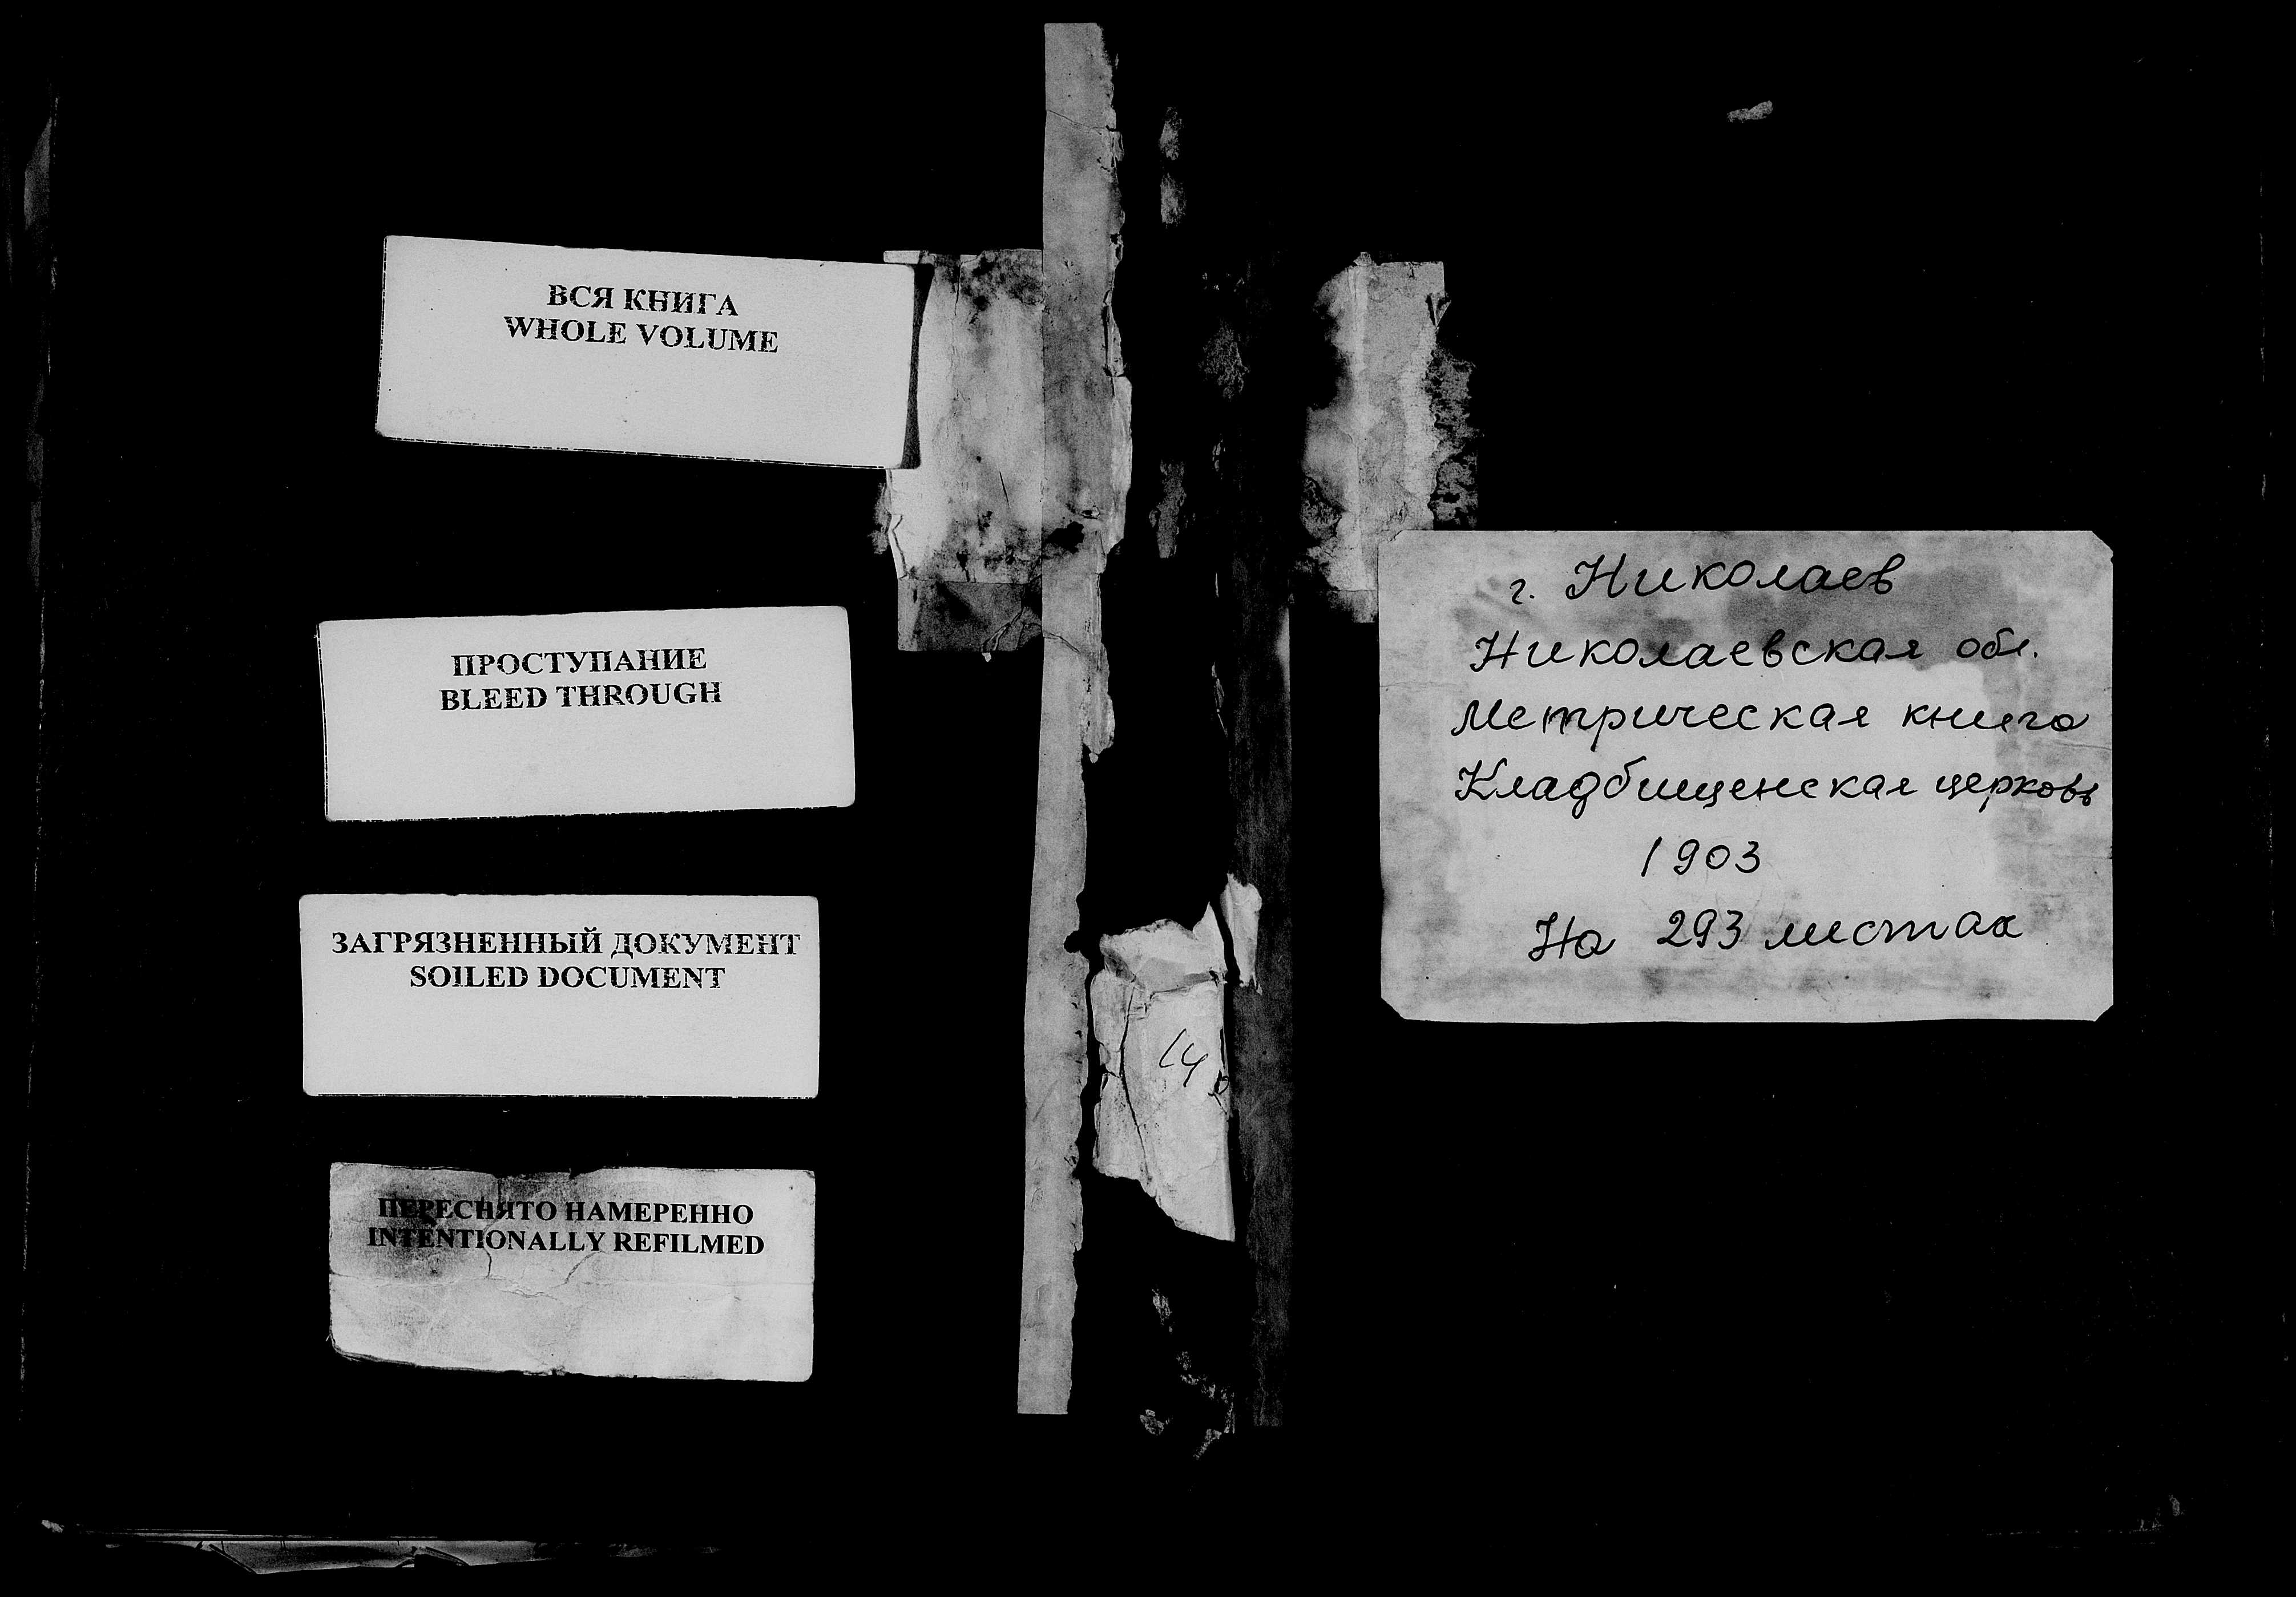 ВСЯ КНИГА
WHOLE VOLUME
ПРОСТУПАНИЕ
BLEED THROUGH
ЗАГРЯЗНЕННЫЙ ДОКУМЕНТ
SOILED DOCUMENT
ПЕРЕСНЯТО НАМЕРЕННО
INTENTIONALLY REFILMED
г. Николаев
Николаевская обл.
Метрическая книга
Кладбищенская церковь
1903
На 293 листах